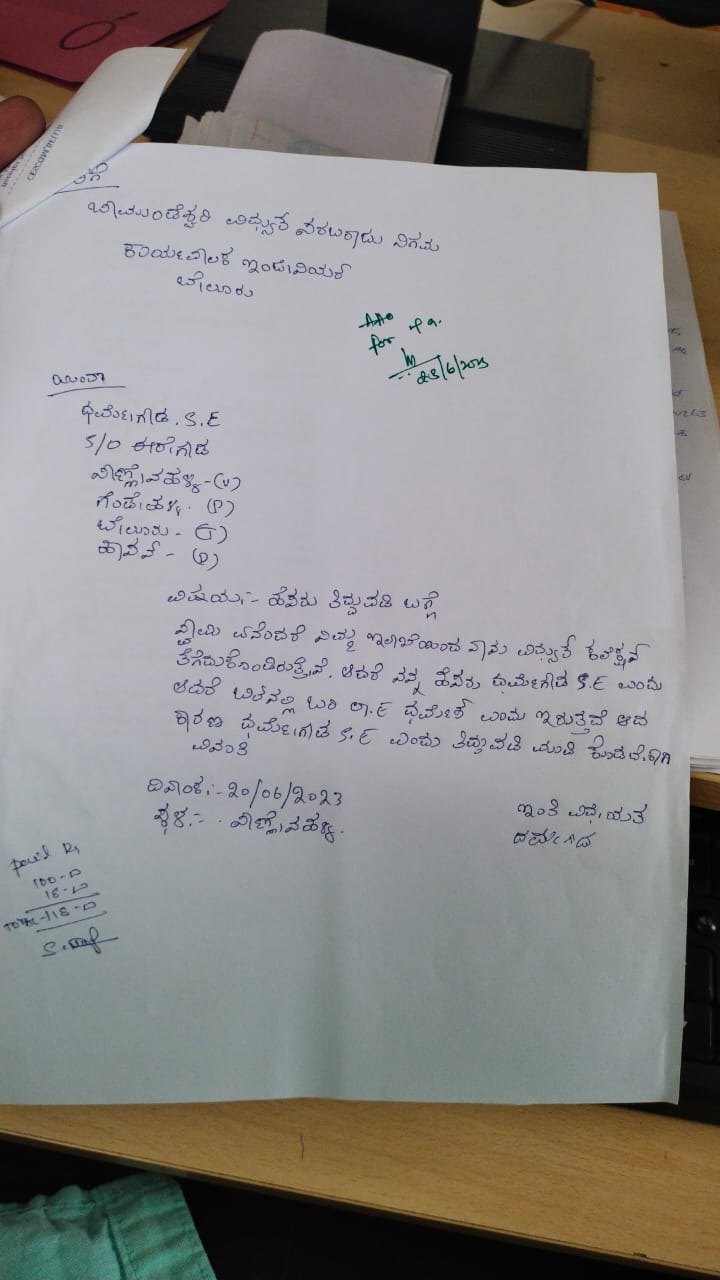 ಚಾಮುಂಡೇಶ್ವರಿ ವಿಧ್ಯುತ್ ಸರಬರಾಜು ನಿಗಮ
ಕಾರ್ಯಪಾಲಕ ಇಂಜಿನಿಯರ್
ಬೇಲೂರು
AAO
for
23/6/2023
ಯಿಂದಾ
ಧರ್ಮೇಗೌಡ. S.E
S/O ಈರೇಗೌಡ
(V)
ಗೆಂಡೇಹಳ್ಳಿ. (P)
ಬೇಲೂರು - (T)
ಹಾಸನ್ - (D)
ವಿಷಯ:- ಹೆಸರು ತಿದ್ದುಪಡಿ ಬಗ್ಗೆ
ಸ್ವಾಮಿ ಏನೆಂದರೆ ನಿಮ್ಮ ಇಲಾಖೆಯಿಂದ ನಾನು ವಿಧ್ಯುತ್ ಕನೆಕ್ಷನ್
ತೆಗೆದುಕೊಂಡಿರುತ್ತೇನೆ. ಆದರೆ ನನ್ನ ಹೆಸರು ಧರ್ಮೇಗೌಡ S.E ಎಂದು
ಆದರೆ ಬಿಲ್‌ನಲ್ಲಿ ಬರಿ ಧರ್ಮೇಶ್ ಎಂದು ಇರುತ್ತವೆ ಆದ
ಕಾರಣ ಧರ್ಮೇಗೌಡ S.E ಎಂದು ತಿದ್ದುಪಡಿ ಮಾಡಿ ಕೊಡಬೇಕಾಗಿ
ವಿನಂತಿ
ದಿನಾಂಕ:- 20/06/2023
ಸ್ಥಳ:-
ಇಂತಿ ವಿಧೇಯತ
paid Rs
100-0
18-0
Total-118-0